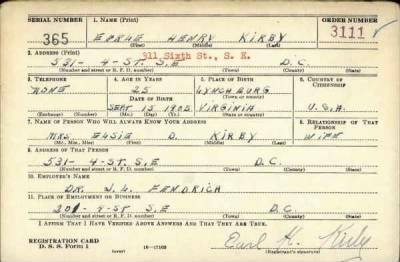 SERIAL NUMBER 1. NAME (Print) ORDER NUMBER
365 HENRY KIRBY 3111
(First) (Middle) (Last)
2. ADDRESS (Print) 311 Sixth St., S. E.
531- 4-ST. S.E D.C.
(Number and street or R. F. D. number) (Town) (County) (State)
3. TELEPHONE 4. AGE IN YEARS 5. PLACE OF BIRTH 6. COUNTRY OF CITIZENSHIP
NONE 35 LYNCHBURG
DATE OF BIRTH (Town or county)
SEPT 15 1905 VIRGINIA U.S.A.
(Exchange) (Number) (Mo.) (Day) (Yr.) (State or country)
7. NAME OF PERSON WHO WILL ALWAYS KNOW YOUR ADDRESS 8. RELATIONSHIP OF THAT PERSON
MRS. ELSIE D. KIRBY WIFE
(Mr., Mrs., Miss) (First) (Middle) (Last)
9. ADDRESS OF THAT PERSON
531- 4-ST. S.E D.C.
(Number and street or R. F. D. number) (Town) (County) (State)
10. EMPLOYER'S NAME
DR. J.L. FENDRICH
11. PLACE OF EMPLOYMENT OR BUSINESS
201- 4-ST S.E D.C.
(Number and street or R. F. D. number) (Town) (County) (State)
I AFFIRM THAT I HAVE VERIFIED ABOVE ANSWERS AND THAT THEY ARE TRUE.
REGISTRATION CARD
D. S. S. Form 1 (over) 16—17105 Earl H. Kirby
(Registrant's signature)